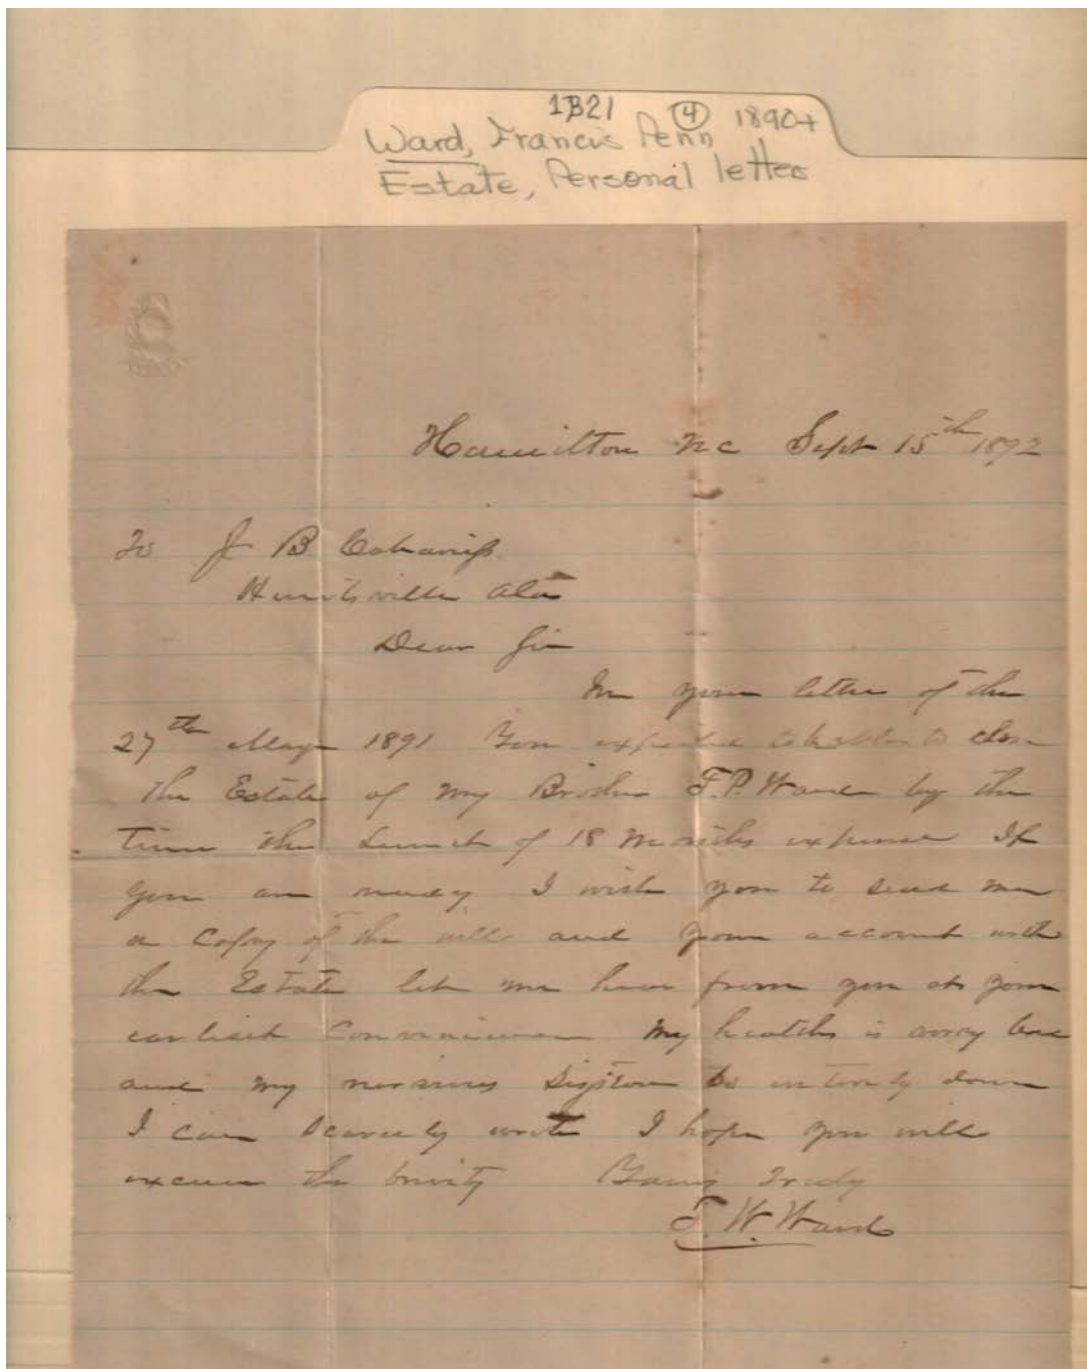 1B21 ④ 1890+
Ward, Francis Penn
Estate, Personal letters
Hamilton NC Sept 15th 1892
To J B. Cabaniss
Huntsville Ala
Dear Sir
In your letter of the
27th May 1891 You to close
the Estate of my Brother F.P. Ward by the
time the of 18 Months expense If
you are ready I wish you to send me
a Copy of the will and your account with
the Estate let me hear from you at your
earliest Convenience My health is very bad
and my nervous System is entirely down
I can scarcely write I hope you will
excuse the brevity Yours Truly
F. W. Ward